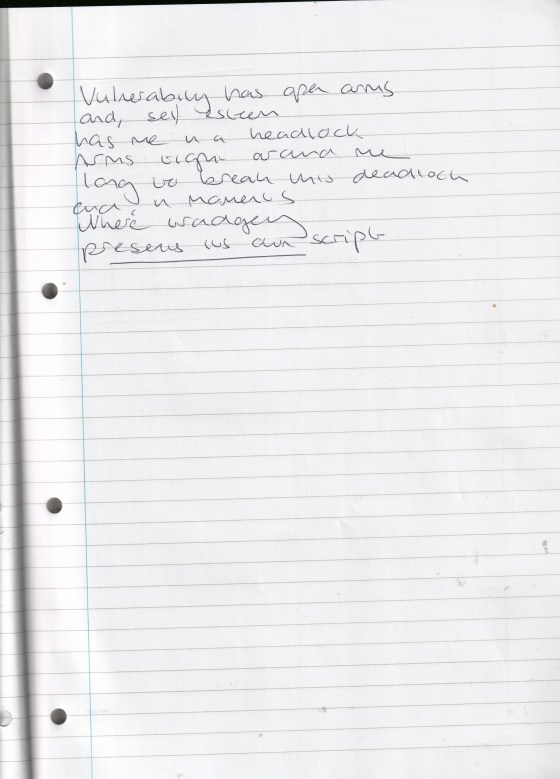 Vulnerability has open arms
and, self esteem
has me in a headlock
Arms tight around me
long to break this deadlock
and in moments
Where
presents its own script